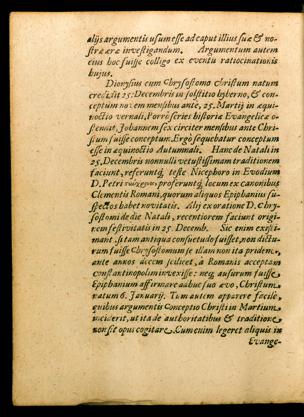 alijs argumentis usum esse ad caput illius suæ & no-
stræ æræ investigandum. Argumentum autem
ejus hoc fuisse colligo ex eventu ratiocinationis
hujus.
Dionysius cum Chrysostomo Christum natum
credidit 25: Decembris in solstitio hyberno, & con-
ceptum novem mensibus ante, 25. Martij in æqui-
noctio vernali, Porrò series historiæ Evangelicæ o-
stendit, Johannem sex circiter mensibus ante Chri-
stum fuisse conceptum. Ergò sequebatur conceptum
esse in æquinoctio Autumnali. Hanc de Natali in
25. Decembris nonnulli vetustissimam traditionem
faciunt, referuntq; teste Nicephoro in Evodium
D. Petri proferuntq; locum ex canonibus
Clementis Romani, quorum aliquos Epiphanius su-
spectos habet novitatis. Alij ex oratione D. Chry-
sostomi de die Natali, recentiorem faciunt origi-
nem festivitatis in 25. Decemb. Sic enim exist-
mant, si tam antiqua consuetudo fuisset, non dictu-
rum fuisse Chrysostomum se illam non ita pridem,
ante annos decem scilicet, à Romanis acceptam
Constantinopolim invexisse: neq; ausurum fuisse
Epiphanium affirmare adhuc suo ævo, Christum
natum 6. Januarij. Tum autem apparere facile,
quibus argumentis Conceptio Christi in Martium
inciderit, ut ita de authoritatibus & traditione
non sit opus cogitare. Cum enim legeret aliquis in
Evange-